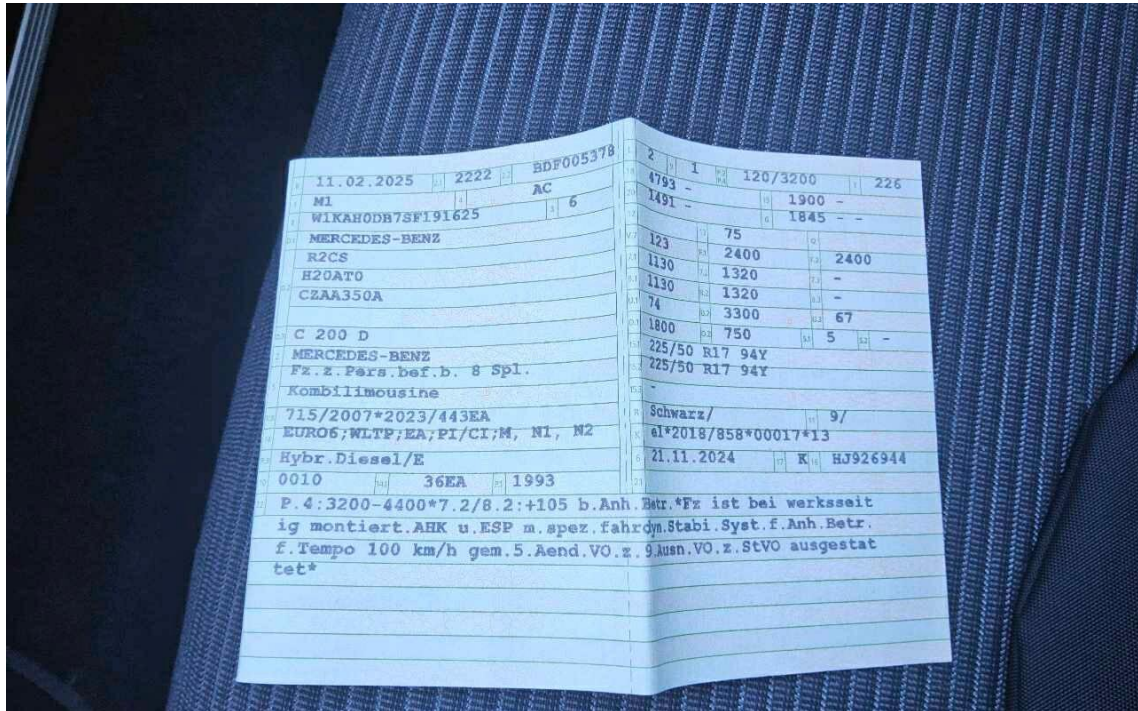 11.02.2025 2222 BDF005378
M1 AC
W1KAH0DB7SF191625 6
MERCEDES-BENZ
R2CS
H20AT0
CZAA350A
C 200 D
MERCEDES-BENZ
Fz.z.Pers.bef.b. 8 Spl.
Kombilimousine
715/2007*2023/443EA
EURO6;WLTP;EA;PI/CI;M, N1, N2
Hybr.Diesel/E
0010 36EA 1993
2 1 120/3200 226
4793 - 1900 -
1491 - 1845 - -
75
123 2400 2400
1130 1320 -
1130 1320 -
74 3300 67
1800 750 5 -
225/50 R17 94Y
225/50 R17 94Y
-
Schwarz/ 9/
e1*2018/858*00017*13
21.11.2024 K HJ926944
P.4:3200-4400*7.2/8.2:+105 b.Anh.Betr.*Fz ist bei werksseit
ig montiert.AHK u.ESP m.spez.fahrdyn.Stabi.Syst.f.Anh.Betr.
f.Tempo 100 km/h gem.5.Aend.VO.z.9.Ausn.VO.z.StVO ausgestat
tet*